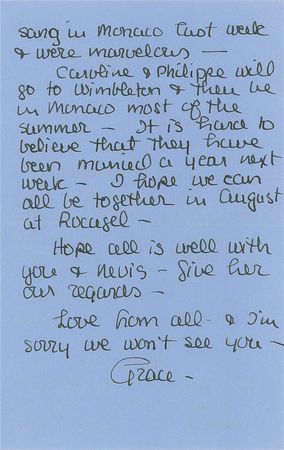 sang in Monaco last week
& were marvelous —
Caroline & Philippe will
go to Wimbleton & then be
in Monaco most of the
summer — It is hard to
believe that they have
been married a year next
week — I hope we can
all be together in August
at Rocagel —
Hope all is well with
you & Nevis — Give her
our regards —
Love from all - & I'm
sorry we won't see you —
Grace —